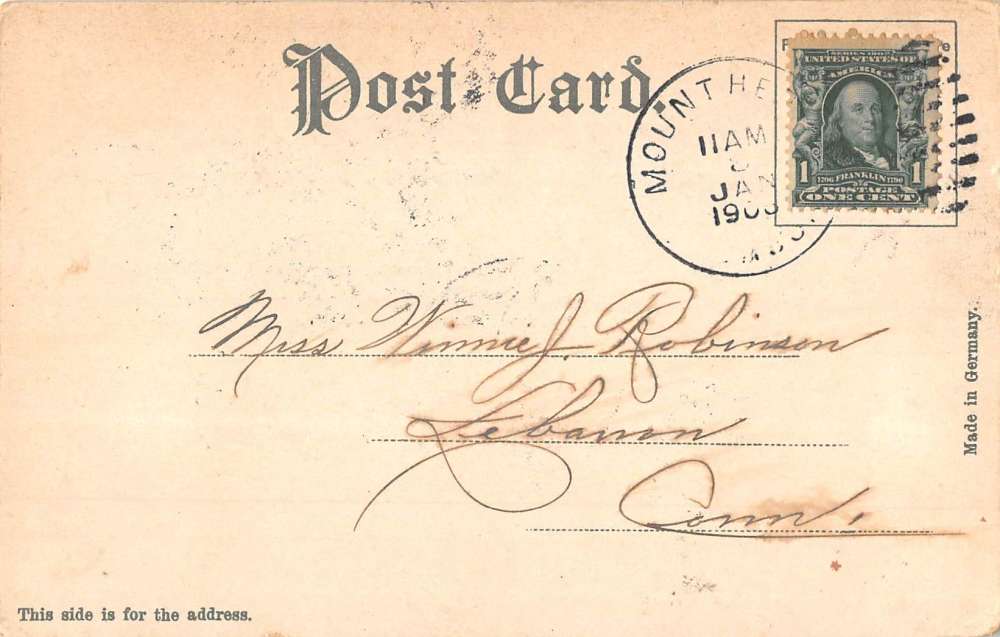 Post Card.
MOUNT HE
11 AM
JAN
190
SERIES 1902
UNITED STATES OF
AMERICA
1 1
1706 FRANKLIN 1790
POSTAGE
ONE CENT
Miss Winnie J. Robinson
Lebanon
Conn.
Made in Germany.
This side is for the address.